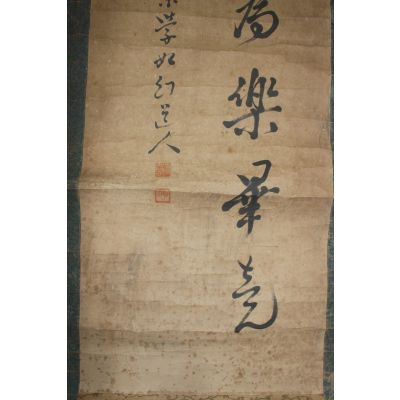 為樂畢竟
學如幻道人